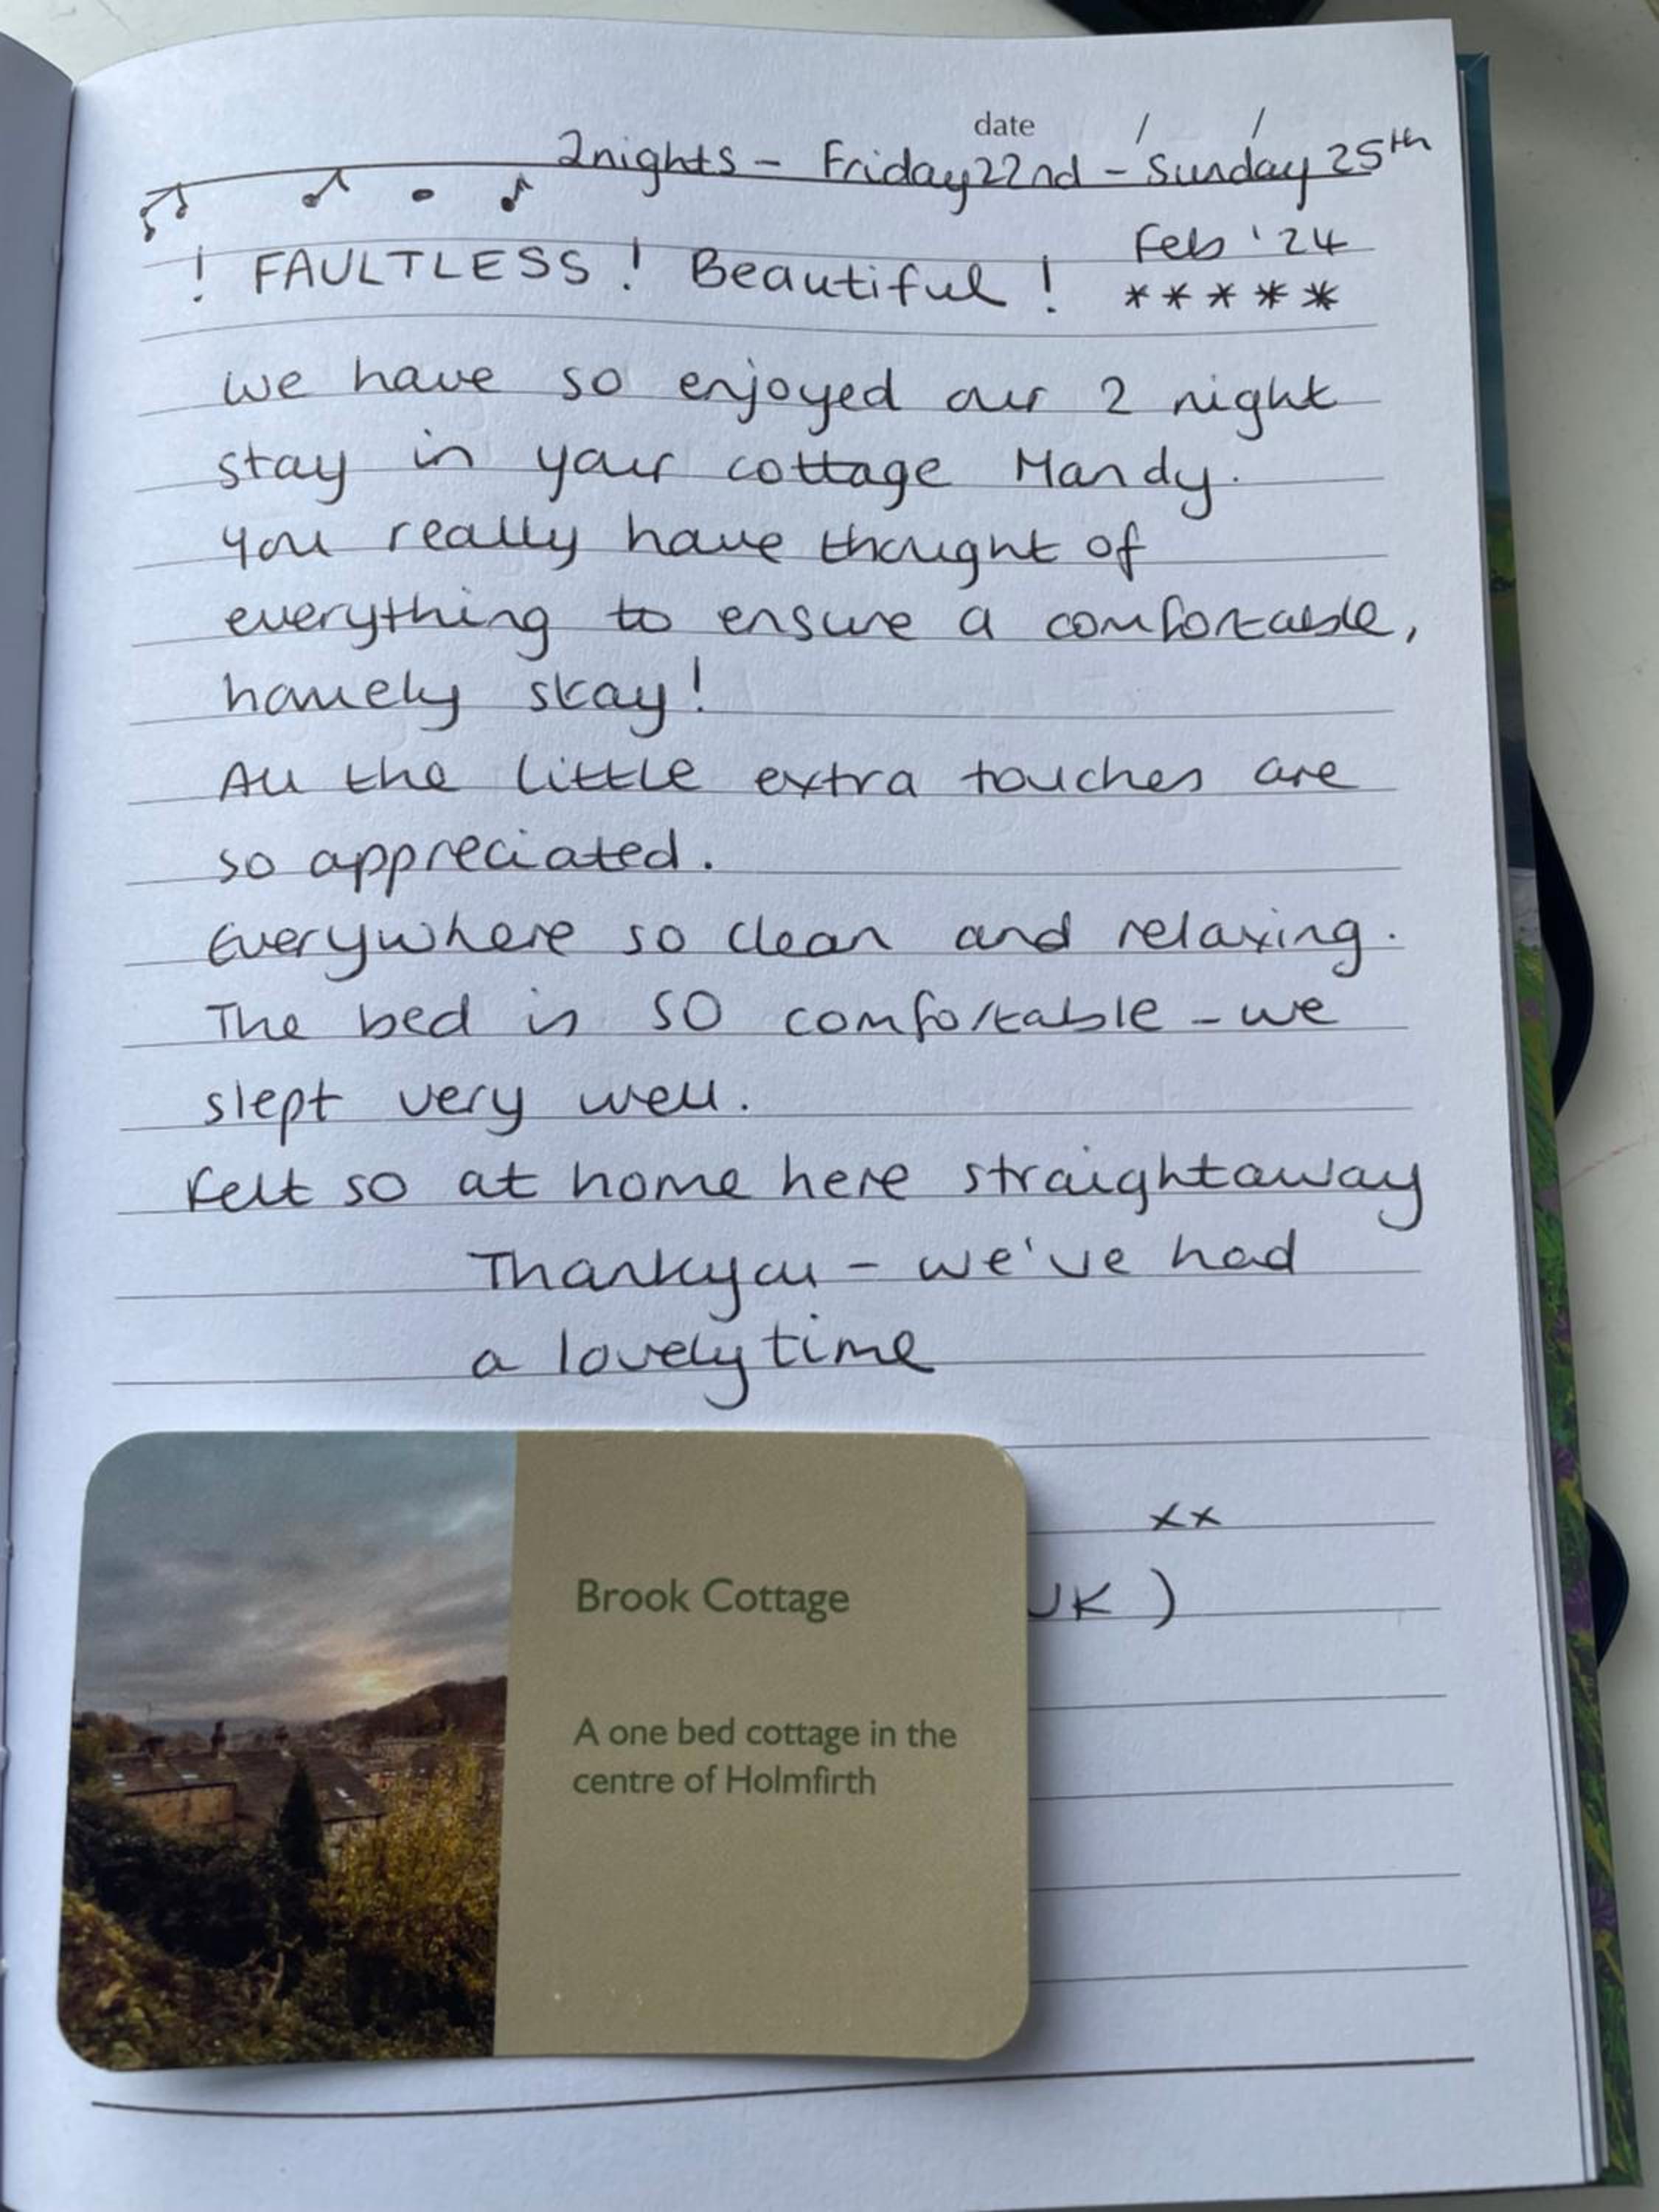 date / /
2nights - Friday 22nd - Sunday 25th
Feb '24
! FAULTLESS ! Beautiful ! *****
we have so enjoyed our 2 night
stay in your cottage Mandy.
you really have thought of
everything to ensure a comfortable,
homely stay!
All the little extra touches are
so appreciated.
Everywhere so clean and relaxing.
The bed is SO comfortable - we
slept very well.
Felt so at home here straightaway
Thankyou - we've had
a lovely time
xx
UK )
Brook Cottage
A one bed cottage in the
centre of Holmfirth